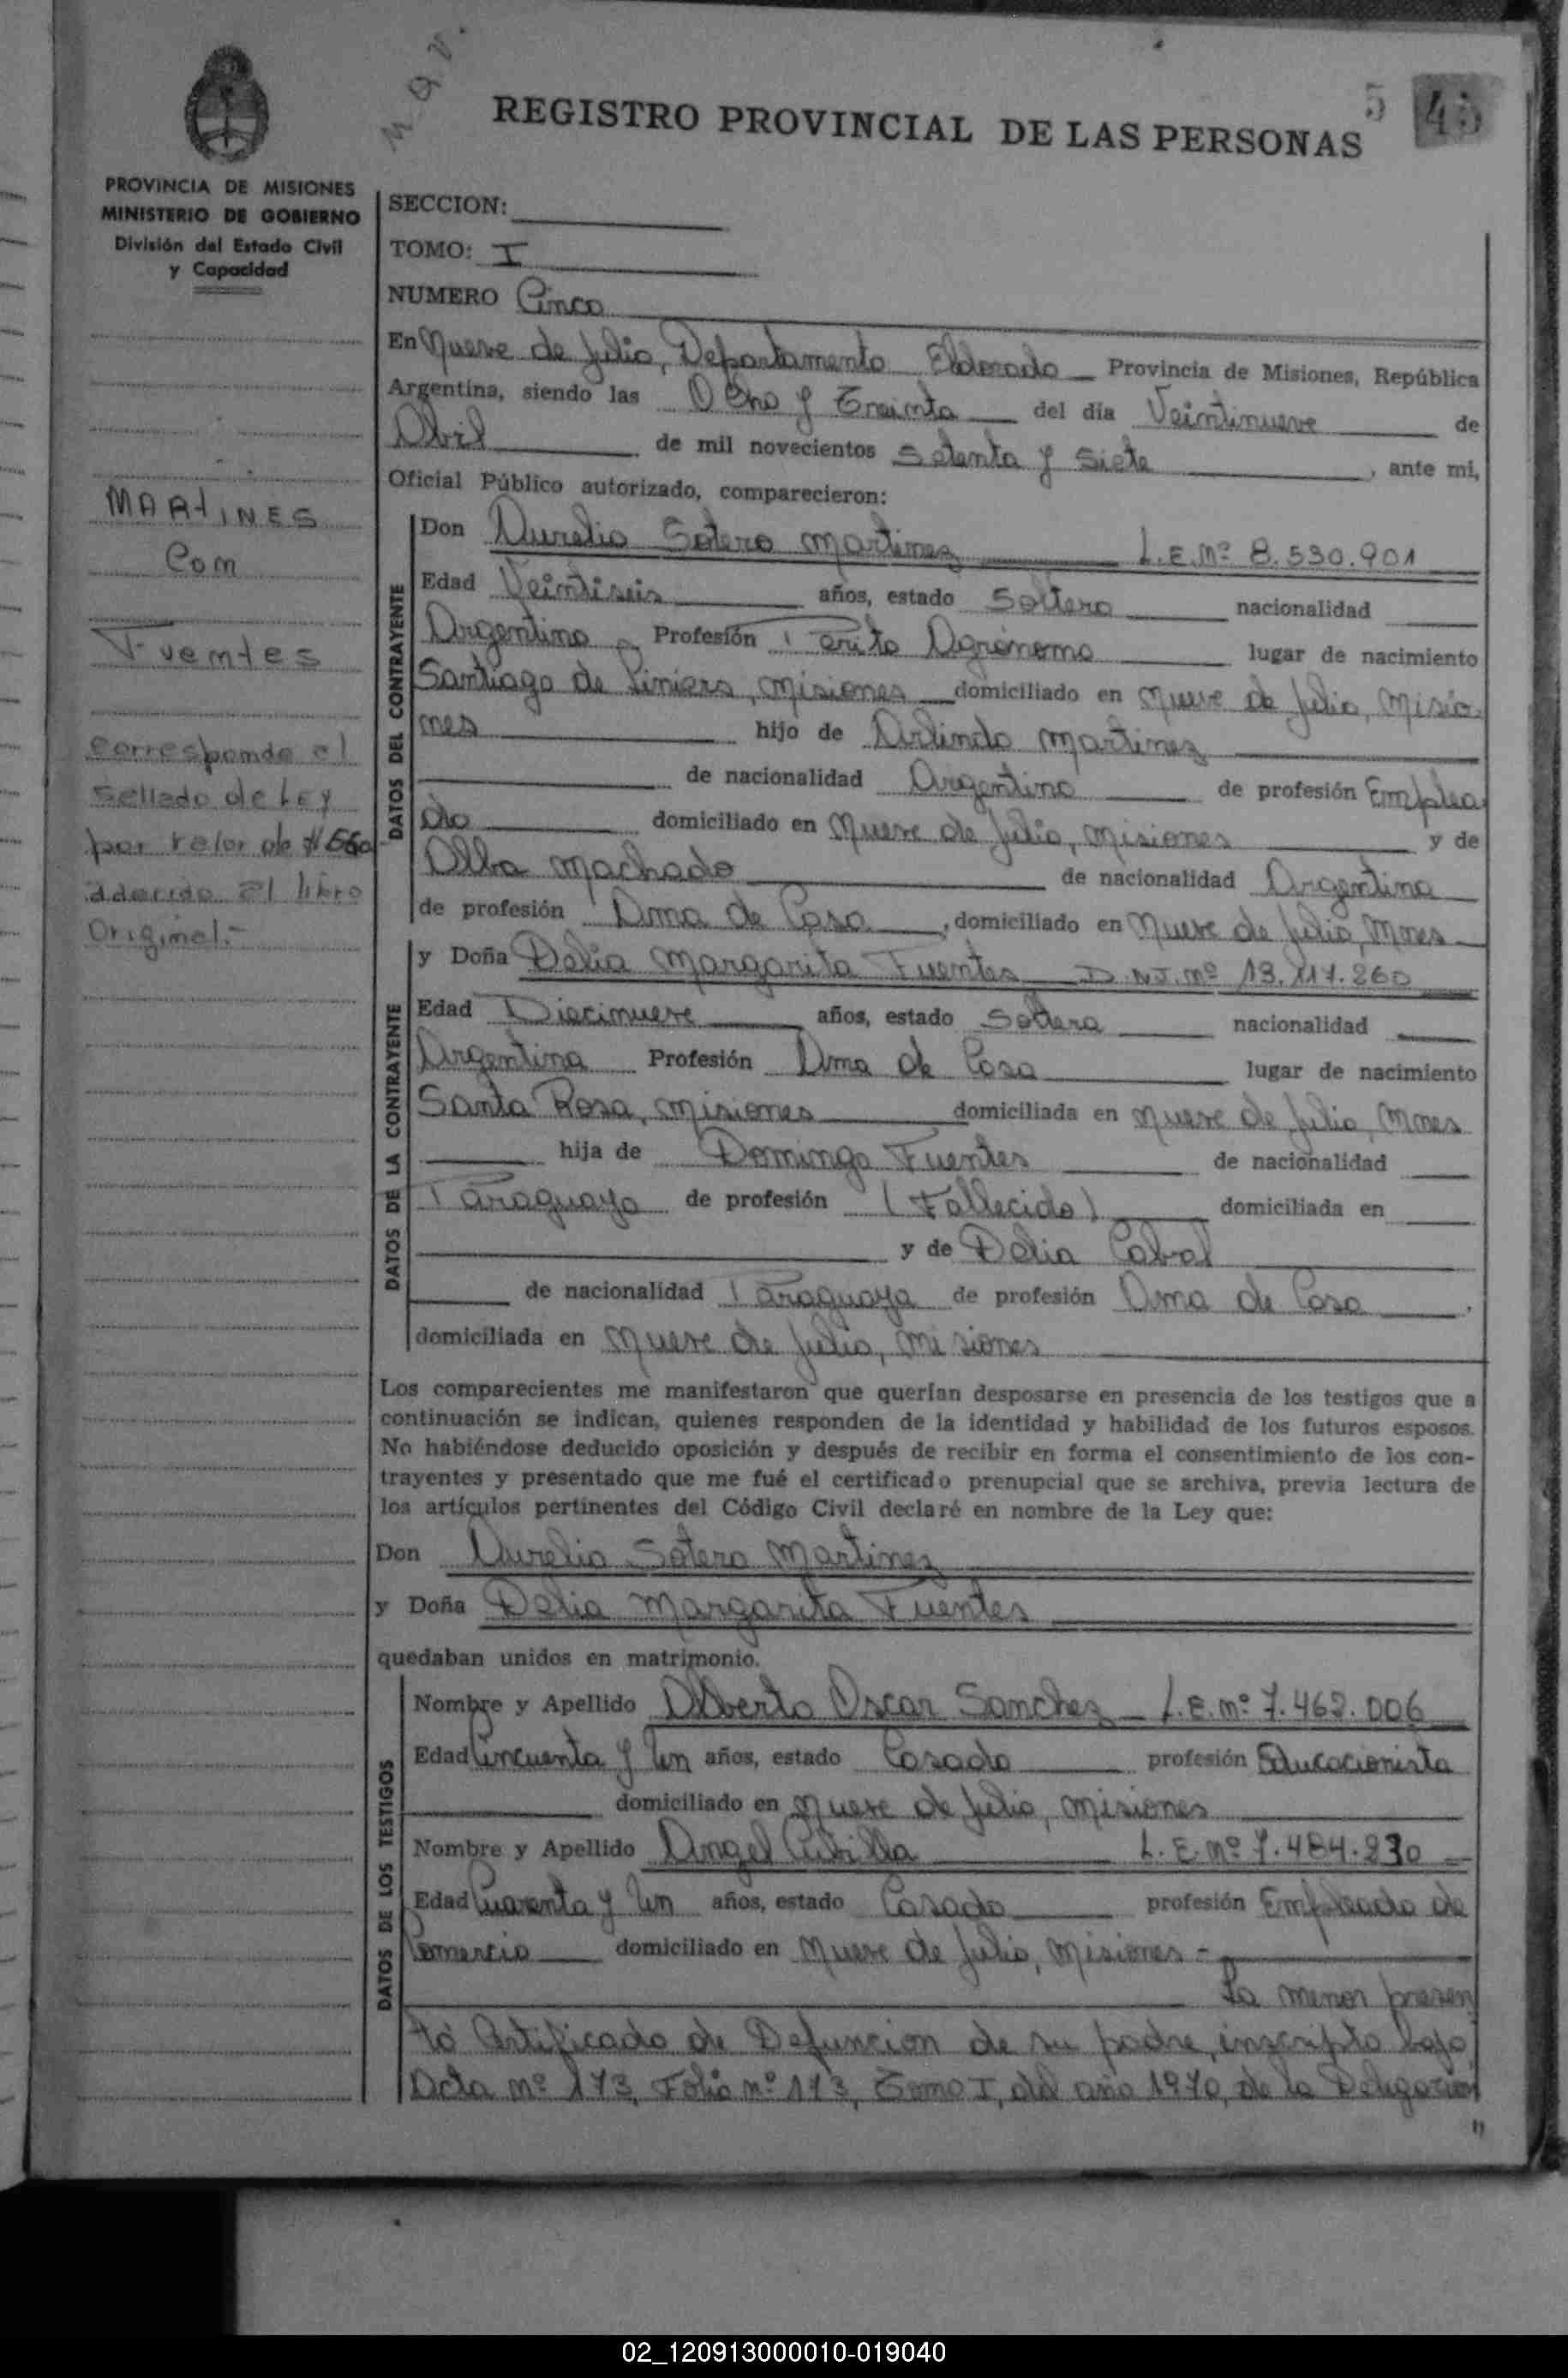 5 45
REGISTRO PROVINCIAL DE LAS PERSONAS
PROVINCIA DE MISIONES
MINISTERIO DE GOBIERNO
División del Estado Civil
y Capacidad
MARTINES
Con
Fuentes
corresponde el
sellado de Ley
por valor de
aderido al libro
Original.-
SECCION:
TOMO: I
NUMERO Cinco
En Nueve de Julio, Departamento Eldorado Provincia de Misiones, República
Argentina, siendo las Ocho y Treinta del día Veintinueve de
Abril de mil novecientos Setenta y Siete, ante mi,
Oficial Público autorizado, comparecieron:
DATOS DEL CONTRAYENTE
Don Aurelio Sotero Martinez L.E.Nº 8.530.901
Edad Veintiseis años, estado Soltero nacionalidad
Argentino Profesión Perito Agrónomo lugar de nacimiento
Santiago de Liniers, Misiones domiciliado en Nueve de Julio, Misio-
nes hijo de Arlindo Martinez
de nacionalidad Argentino de profesión Emplea
do domiciliado en Nueve de Julio, Misiones y de
Alba Machado de nacionalidad Argentina
de profesión Ama de Casa, domiciliado en Nueve de Julio, Mnes
DATOS DE LA CONTRAYENTE
y Doña Delia Margarita Fuentes D.N.I. Nº 13.117.260
Edad Diecinueve años, estado Soltera nacionalidad
Argentina Profesión Ama de Casa lugar de nacimiento
Santa Rosa, Misiones domiciliada en Nueve de Julio, Mnes
hija de Domingo Fuentes de nacionalidad
Paraguayo de profesión (Fallecido) domiciliada en
y de Delia Cabral
de nacionalidad Paraguaya de profesión Ama de Casa,
domiciliada en Nueve de Julio, Misiones
Los comparecientes me manifestaron que querían desposarse en presencia de los testigos que a
continuación se indican, quienes responden de la identidad y habilidad de los futuros esposos.
No habiéndose deducido oposición y después de recibir en forma el consentimiento de los con-
trayentes y presentado que me fué el certificado prenupcial que se archiva, previa lectura de
los artículos pertinentes del Código Civil declaré en nombre de la Ley que:
Don Aurelio Sotero Martinez
y Doña Delia Margarita Fuentes
quedaban unidos en matrimonio.
DATOS DE LOS TESTIGOS
Nombre y Apellido Alberto Oscar Sanchez L.E.Nº 7.462.006
Edad Cincuenta y Un años, estado Casado profesión Educacionista
domiciliado en Nueve de Julio, Misiones
Nombre y Apellido Angel Cubilla L.E.Nº 7.484.230
Edad Cuarenta y Un años, estado Casado profesión Empleado de
Comercio domiciliado en Nueve de Julio, Misiones -
La menor presen
tó Certificado de Defuncion de su padre, inscripto bajo
Acta Nº 173, Folio Nº 173, Tomo I, del año 1970, de la Delegación
02_120913000010-019040